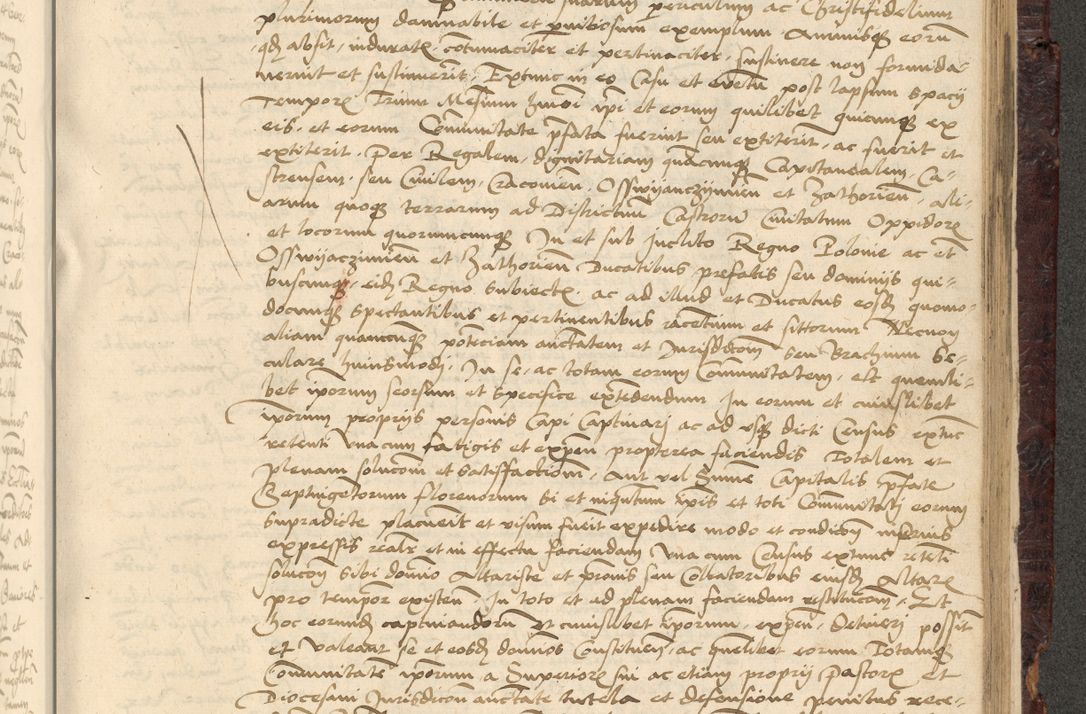 suarum periculum ac Christifidelium
plurimorum damnabile et pnitiosum exemplum. Animisq eorũ
qđ absit, induratꝭ cõtumaciter et pertinaciter, sustinere non formida-
uerint et sustinuerĩt. Extunc in eo Casu et euẽtu post lapsum spacij
Temporꝭ Trium Mesium ipĩ et eorum quilibet quicunq ex
eis, et eorum Cõmunitate pfata fuerint seu extiterĩt, ac fuerit et
extiterit, Per Regalem, dignitariam quãcunq Capitanealem, Ca-
strensem, seu Ciuilem, Cracouien, Osswijanczijmieñ et Zathorieñ, ali-
arum quoq terrarum ad Districtuũ Castrorũ Ciuitatum Oppidorꝭ
et locorum quorumcunq In et sub Inclito Regno Polonie ac et
Osswijacziminẽ et Zathorieñ Ducatibus prefatis seu dominijs qui-
buscunq, eidẽ Regno subiectꝭ ac ad illud et Ducatus eosđ quomo-
docunq spectantibus et pertinentibus iacetium et sittorum Necnon
aliam quamcunq potẽciam auctẽatem et Jurisđcõem seu Brachium se-
culare huiusmodi, In se, ac totam eorum Cõmunitatem, et quemli-
bet ipõrum seorsum et specifice extẽdendum In eorum et cuiuslibet
ipõrum proprijs personis Capi Captiuarj ac ad vsq dicti Census extũc
retenti vnacum fatigis et expeñ propterea faciendis Totalem et
plenam solucõem et satisffactionẽ, Aut vel Summe Capitalis ipfate
Septingẽtorum florenorum si et inquãtum ipĩs et toti Cõmunitatj eorum
supradicte placuerit et visum fuerit expedire modo et condicõe inferius
expressis realr̃ et in effectu faciendam vna cum Census extunc retẽti
solucõe sibi domino Altariste et pronis seu Collatoribus eiusđ Altarꝭ
pro tempor existeñ, In toto et ad plenam faciendam restitucõem. Et
hoc eorundẽ captiuandorũ et cuiuslibet ipõrum, expeñ. Detinerj possĩt
et valeant se et eosđ dominos Constitueñ, ac quelibet eorum Totamq
Cõmunitatẽ ipõrum a Superiorꝭ sui ac etiam proprij Pastorꝭ et
Diocesani Jurisdicõe auctẽate tutela et defensione penitus rece-